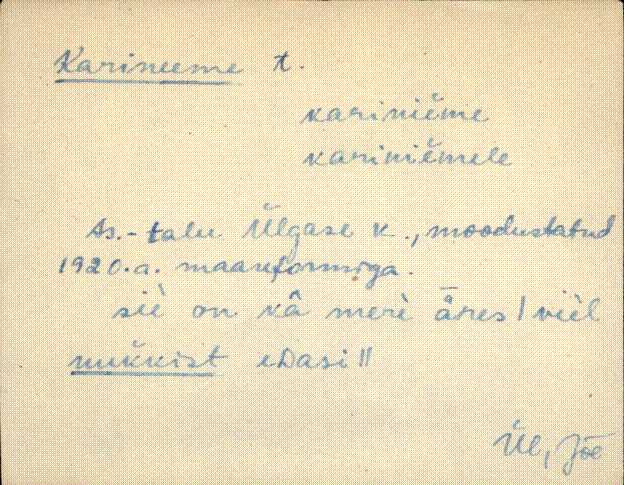 Karineeme t.
kariniĕme
kariniĕmele
As.-talu Ülgase k., moodustatud
1920.a. maareformiga.
siè on kâ merè äres | vièl
nukkist eDasi ||
Ül, Jõe